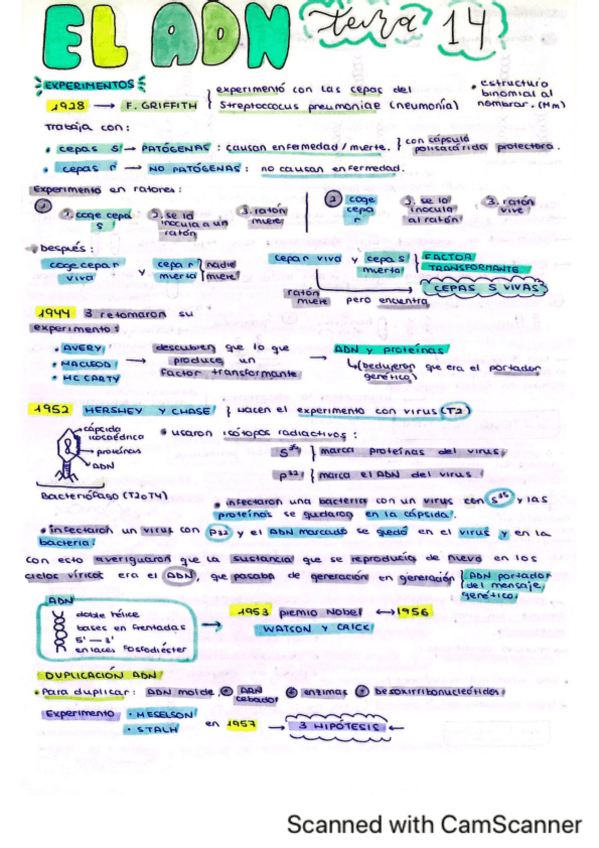 EL ADN tema 14
EXPERIMENTOS
1928 → F. GRIFFITH } experimentó con las cepas del Streptococcus pneumoniae (neumonía)
• estructura binomial al nombrar. (Nm)
Trabaja con:
• cepas S → PATÓGENAS : causan enfermedad / muerte. } con cápsula polisacárida protectora.
• cepas r → NO PATÓGENAS : no causan enfermedad.
Experimento en ratones:
① 1. coge cepa S 2. se la inocula a un ratón 3. ratón muere
② coge cepa r 2. se la inocula al ratón 3. ratón vive
• Después:
coge cepa r viva y cepa r muerta } nadie muere
cepa r viva y cepa s muerta } FACTOR TRANSFORMANTE
ratón muere pero encuentra CEPAS S VIVAS
1944 3 retomaron su experimento:
• AVERY
• MACLEOD
• MC CARTY
→ descubren que lo que produce un factor transformante → ADN y proteínas
↳ (Dedujeron que era el portador genético)
1952 HERSHEY Y CHASE } hacen el experimento con virus (T2)
cápsida icosaédrica
proteínas
ADN
Bacteriófago (T2 o T4)
• usaron isótopos radiactivos:
} marca proteínas del virus
P32 } marca el ADN del virus
• infectaron una bacteria con un virus con S35 y las proteínas se quedaron en la cápsida.
• infectaron un virus con P32 y el ADN marcado se quedó en el virus y en la bacteria.
con esto averiguaron que la sustancia que se reproducía de nuevo en los
ciclos víricos era el ADN, que pasaba de generación en generación } ADN portador del mensaje genético.
ADN
doble hélice
bases enfrentadas
5' — 3'
enlaces fosfodiéster
→ 1953 premio Nobel ↔ 1956
WATSON Y CRICK
DUPLICACIÓN ADN
• Para duplicar: ADN molde, + ADN cebador + enzimas + Desoxirribonucleótidos
Experimento • MESELSON
• STALH
en 1957 → 3 HIPÓTESIS ←
Scanned with CamScanner